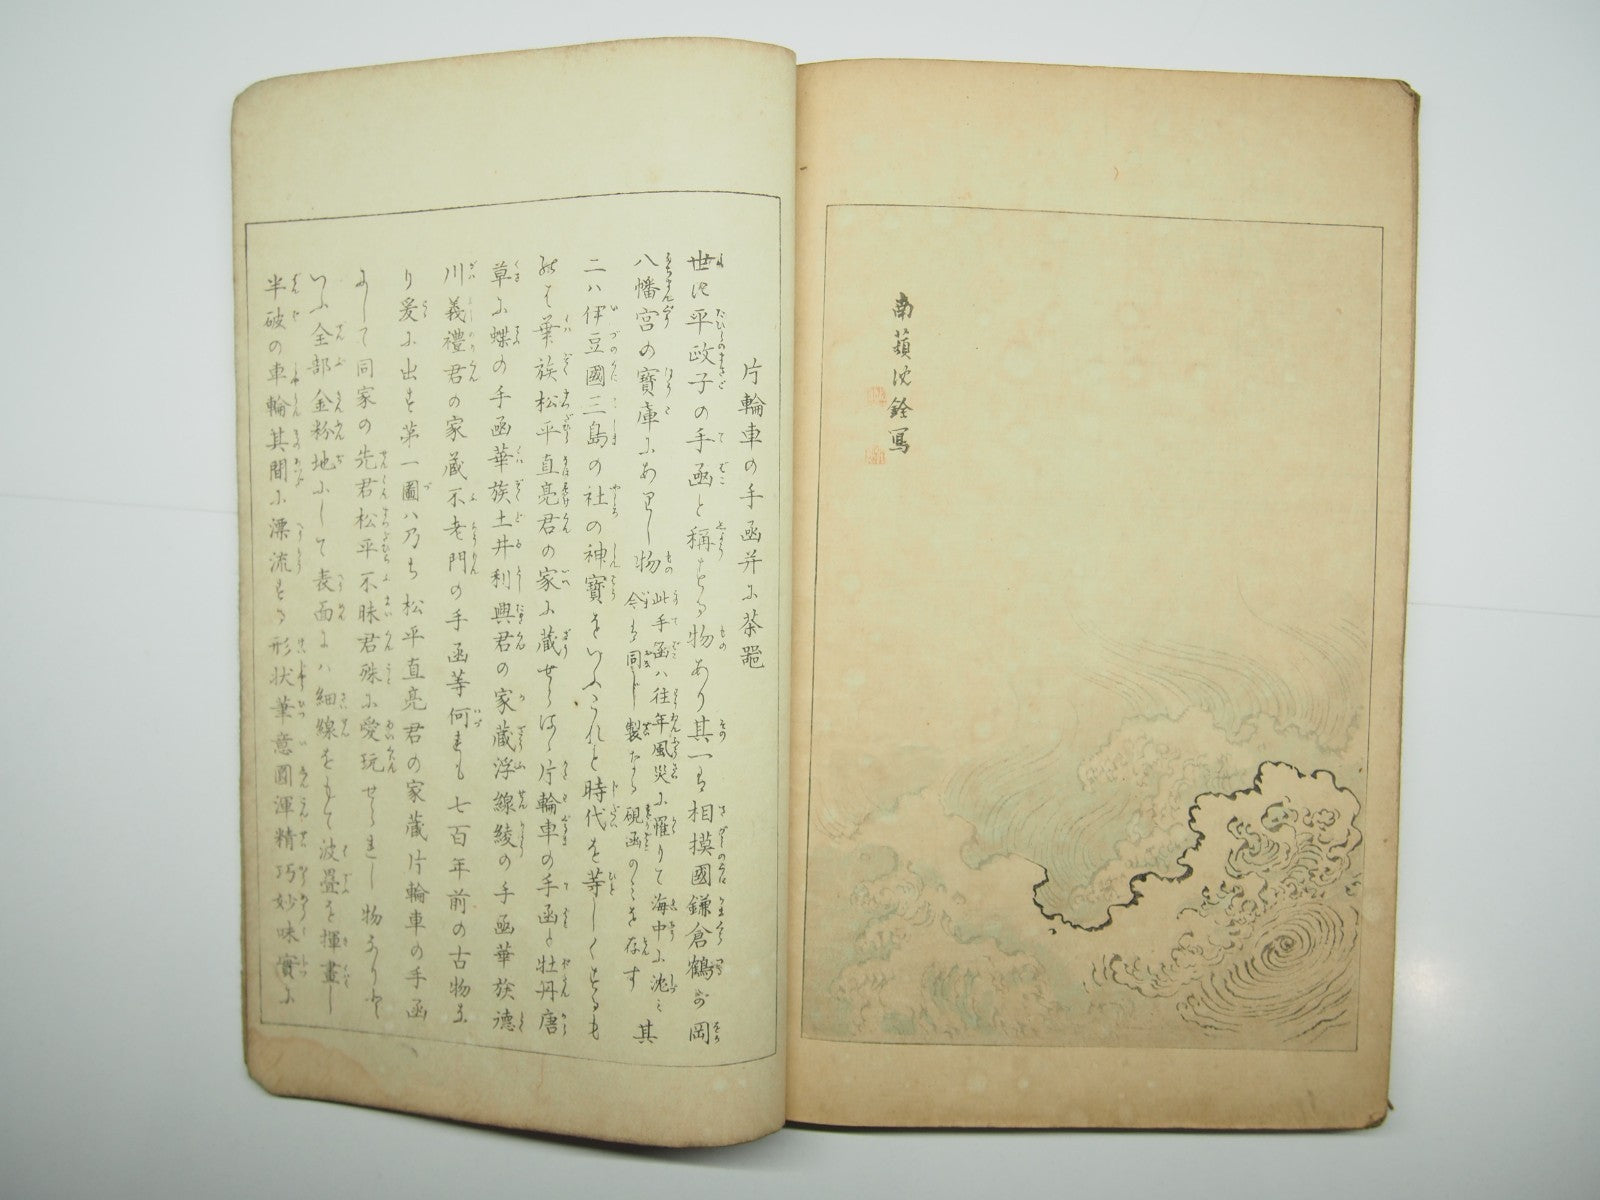 南蘋沈銓寫
片輪車の手函并に茶器
世に平政子の手函と稱する物あり其一は相摸國鎌倉鶴が岡
八幡宮の寶庫にありし物此手函ハ往年風災に罹りて海中に沈み今は同じ製たる硯函のみを存す其
二ハ伊豆國三島の社の神寶をいふこれと時代を等しくするも
のは華族松平直亮君の家に藏せらるゝ片輪車の手函と牡丹唐
草に蝶の手函華族土井利與君の家藏浮線綾の手函華族德
川義禮君の家藏不老門の手函等何れも七百年前の古物な
り爰に出す第一圖ハ乃ち松平直亮君の家藏片輪車の手函
にして同家の先君松平不昧君殊に愛玩せられし物なりと
いふ全部金粉地にして表面にハ細線をもて波疊を揮畫し
半破の車輪其間に漂流する形状筆意圓渾精巧妙味實に